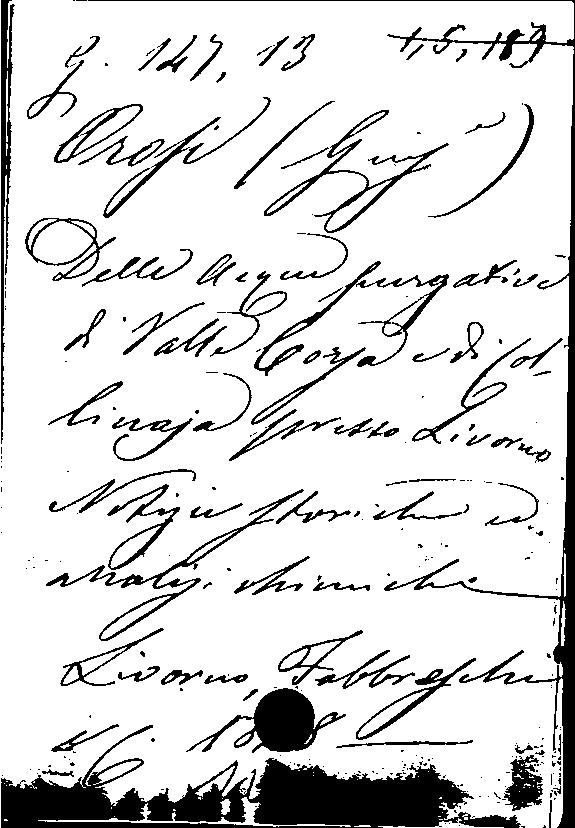 G. 147, 13
Orosi (Giusᵉ)
Delle Acque purgative
di Valle Corsa e di Col-
linaja presso Livorno
Notizie storiche ed
analisi chimiche
Livorno, Fabbreschi